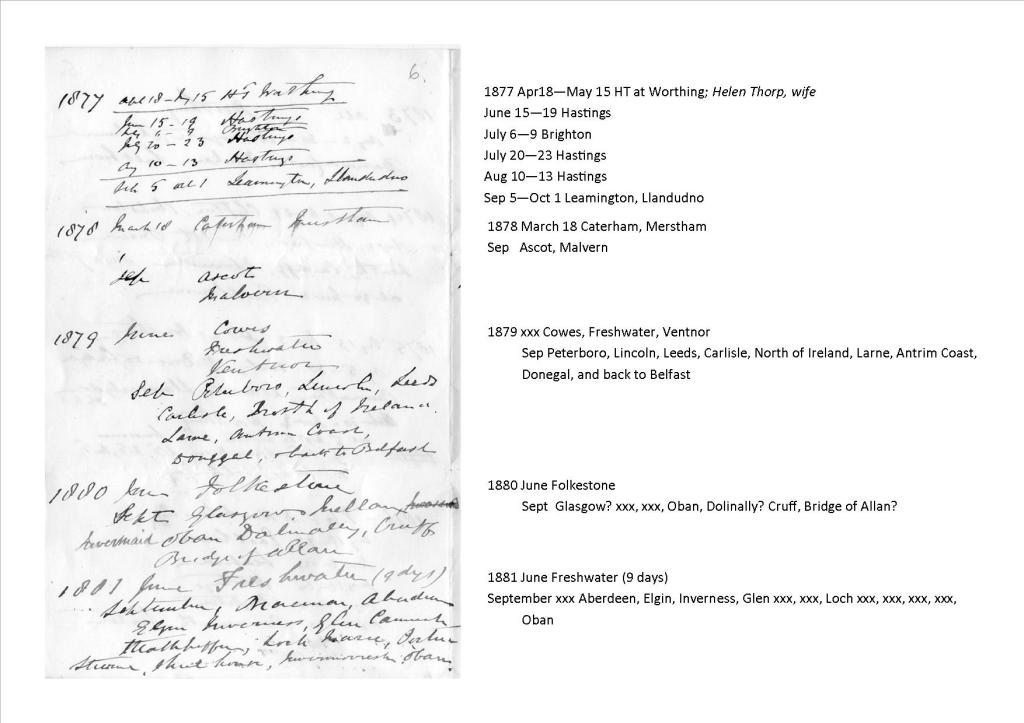 6.
1877 apl 18 - My 15 HT Worthing
Jun 15 - 19 Hastings
July 6 - 9 Brighton
July 20 - 23 Hastings
Aug 10 - 13 Hastings
Sep 5 Oct 1 Leamington, Llandudno
1878 March 18 Caterham Merstham
Sep Ascot
Malvern
1879 June Cowes
Freshwater
Ventnor
Sep Peterboro, Lincoln, Leeds
Carlisle, North of Ireland,
Larne, Antrim Coast,
Donegal, & back to Belfast
1880 June Folkestone
Sept Glasgow
Inversnaid Oban Dalmally, Crieff
Bridge of Allan
1881 June Freshwater (9 days)
September, Braemar, Aberdeen
Elgin Inverness, Glen
Strathpeffer, Loch Maree,
Oban
1877 Apr18—May 15 HT at Worthing; Helen Thorp, wife
June 15—19 Hastings
July 6—9 Brighton
July 20—23 Hastings
Aug 10—13 Hastings
Sep 5—Oct 1 Leamington, Llandudno
1878 March 18 Caterham, Merstham
Sep Ascot, Malvern
1879 xxx Cowes, Freshwater, Ventnor
Sep Peterboro, Lincoln, Leeds, Carlisle, North of Ireland, Larne, Antrim Coast,
Donegal, and back to Belfast
1880 June Folkestone
Sept Glasgow? xxx, xxx, Oban, Dolinally? Cruff, Bridge of Allan?
1881 June Freshwater (9 days)
September xxx Aberdeen, Elgin, Inverness, Glen xxx, xxx, Loch xxx, xxx, xxx, xxx,
Oban